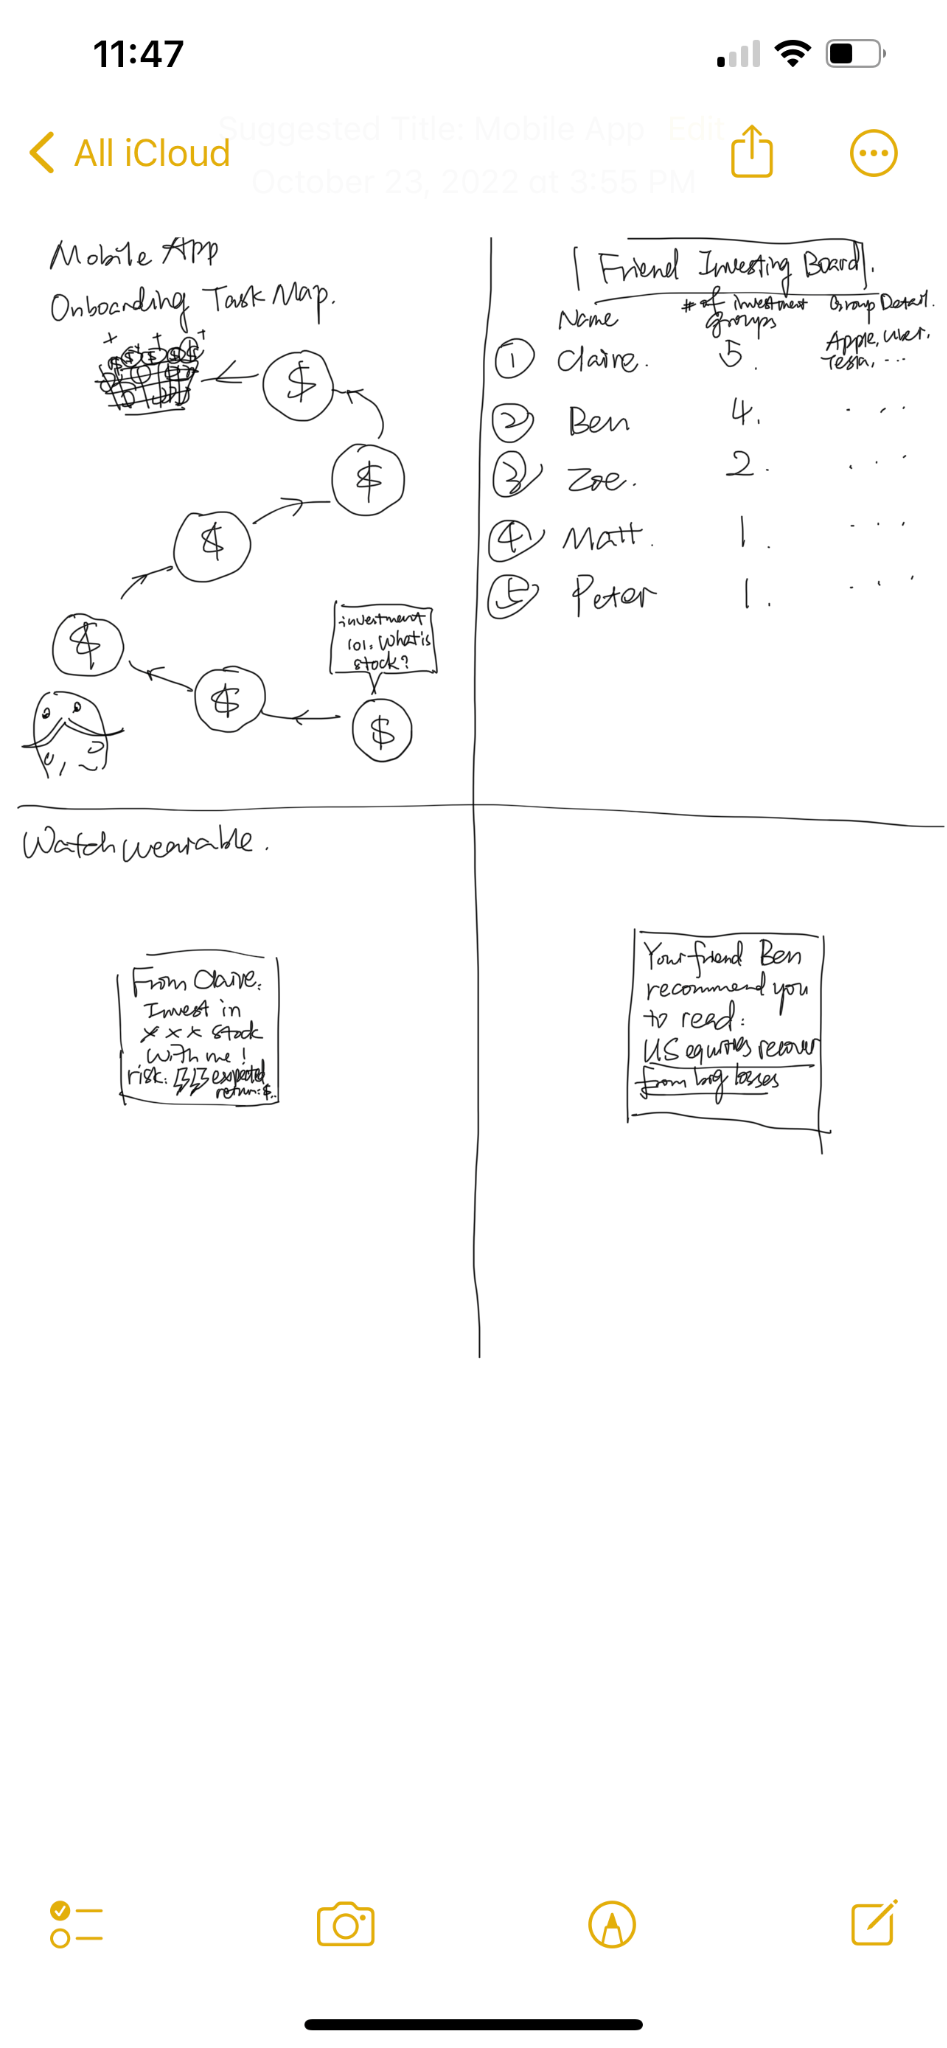 11:47
Suggested Title: Mobile App Edit
All iCloud
October 23, 2022 at 3:55 PM
Mobile App
Onboarding Task Map.
$
$
$
$
$
$
investment
101. What is
stock?
Friend Investing Board.
Name # of investment groups Group Detail.
① Claire. 5. Apple, Uber, Tesla, ...
② Ben 4. ...
③ Zoe. 2. ...
④ Matt. 1. ...
⑤ Peter 1. ...
Watch wearable.
From Claire.
Invest in
x x x stock
with me!
risk: expected
return: $..
Your friend Ben
recommend you
to read:
US equities recover
from big losses